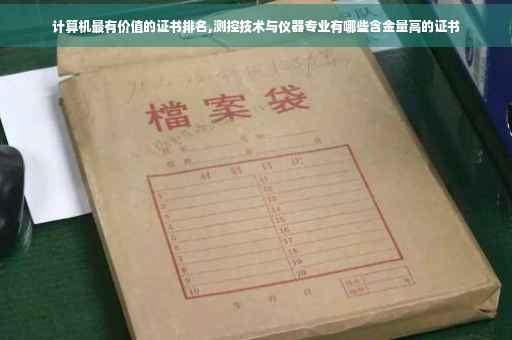 计算机最有价值的证书排名,测控技术与仪器专业有哪些含金量高的证书
檔案袋
材料目次
1 11
2 12
3 13
4 14
5 15
6 16
7 17
8 18
9 19
10 20
年 月 日